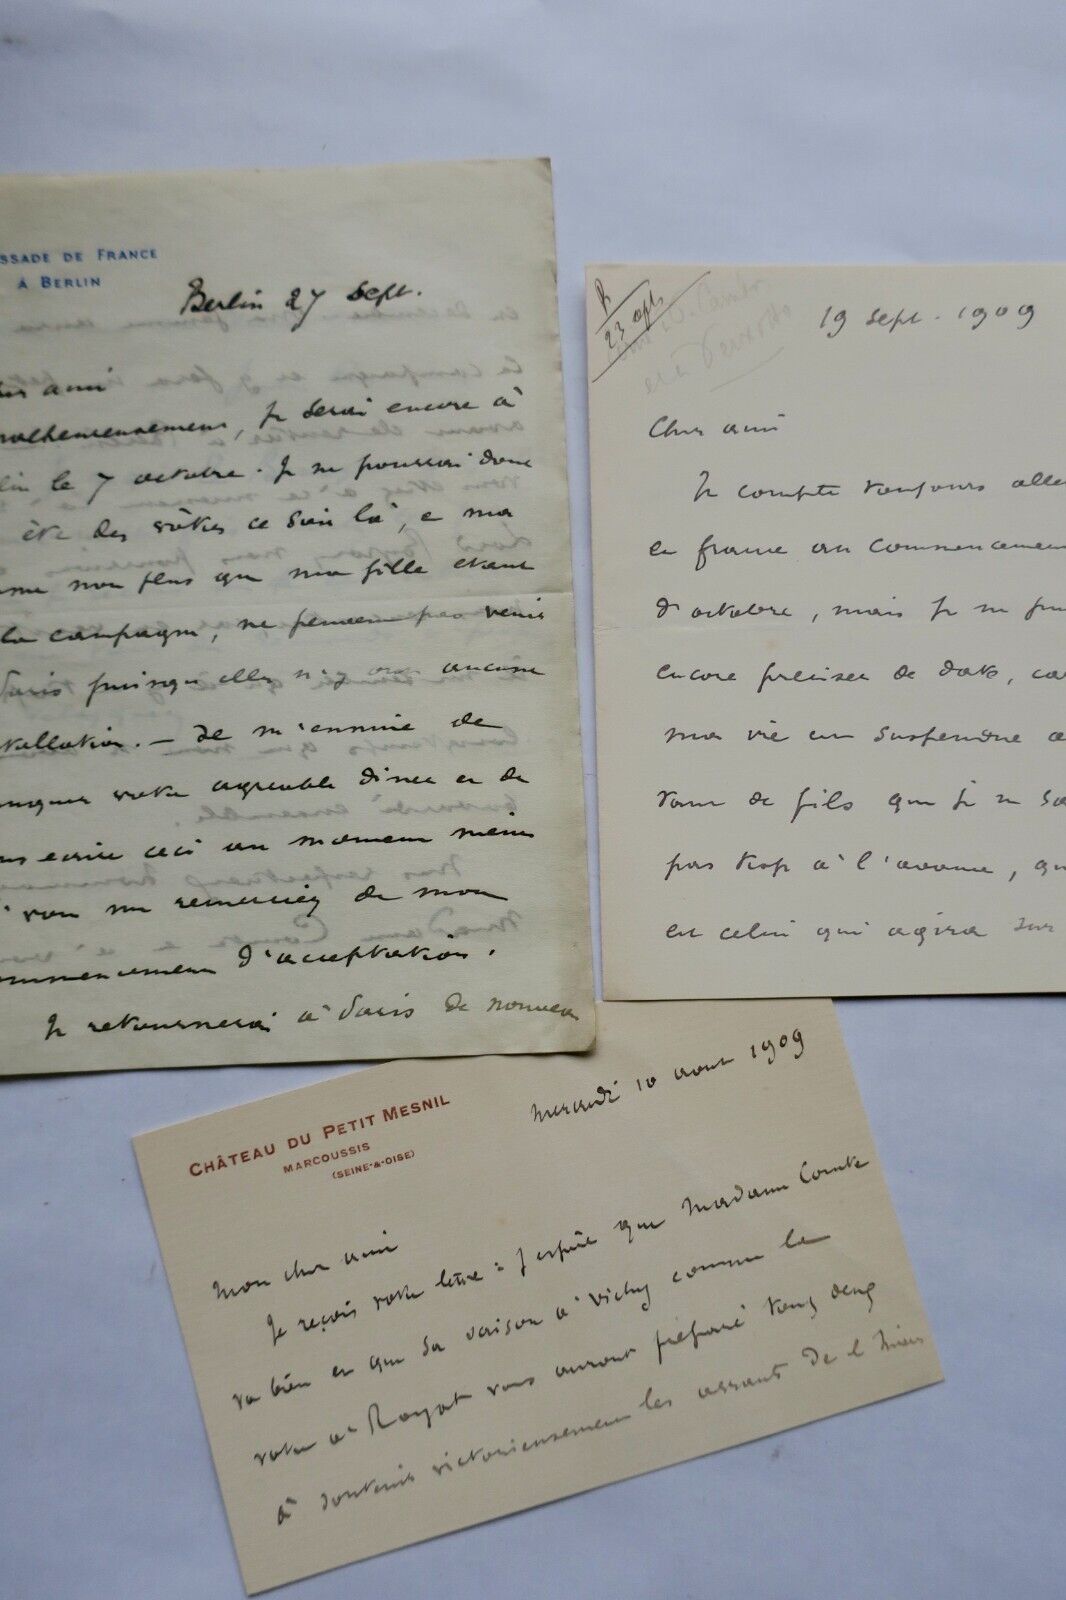 SSADE DE FRANCE
À BERLIN
Berlin 27 sept.
ami
malheureusement, je serai encore à
lin le 7 octobre. Je ne pourrai donc
être des vôtres ce soir là, e ma
me non plus que ma fille étant
la campagne, ne peuvent pas venir
Paris puisque elles n'y ont aucune
tallation. — Je m'ennuie de
manquer votre agréable diner et de
vous écrire ceci au moment même
où vous me remerciez de mon
commencement d'acceptation.
Je retournerai à Paris de nouveau
R
23 sept
19 sept. 1909
Cher ami
Je compte toujours alle
en france au commencemen
d'octobre, mais je ne pui
encore préciser de date, car
ma vie est suspendue à
tant de fils que je ne sa
pas trop à l'avance, qu
est celui qui agira sur
CHÂTEAU DU PETIT MESNIL
MARCOUSSIS
(SEINE-&-OISE)
mercredi 10 aout 1909
Mon cher ami
Je reçois votre lettre : j'espère que Madame Comte
va bien et que sa saison à Vichy comme la
votre à Royat vous auront préparé tous deux
à soutenir victorieusement les assauts de l'hiver